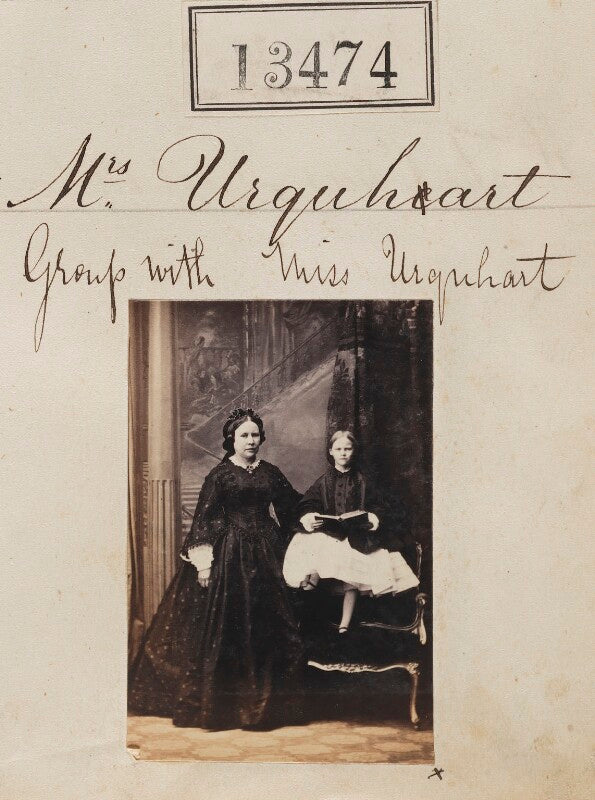 13474
Mrs Urquhart
Group with Miss Urquhart
x